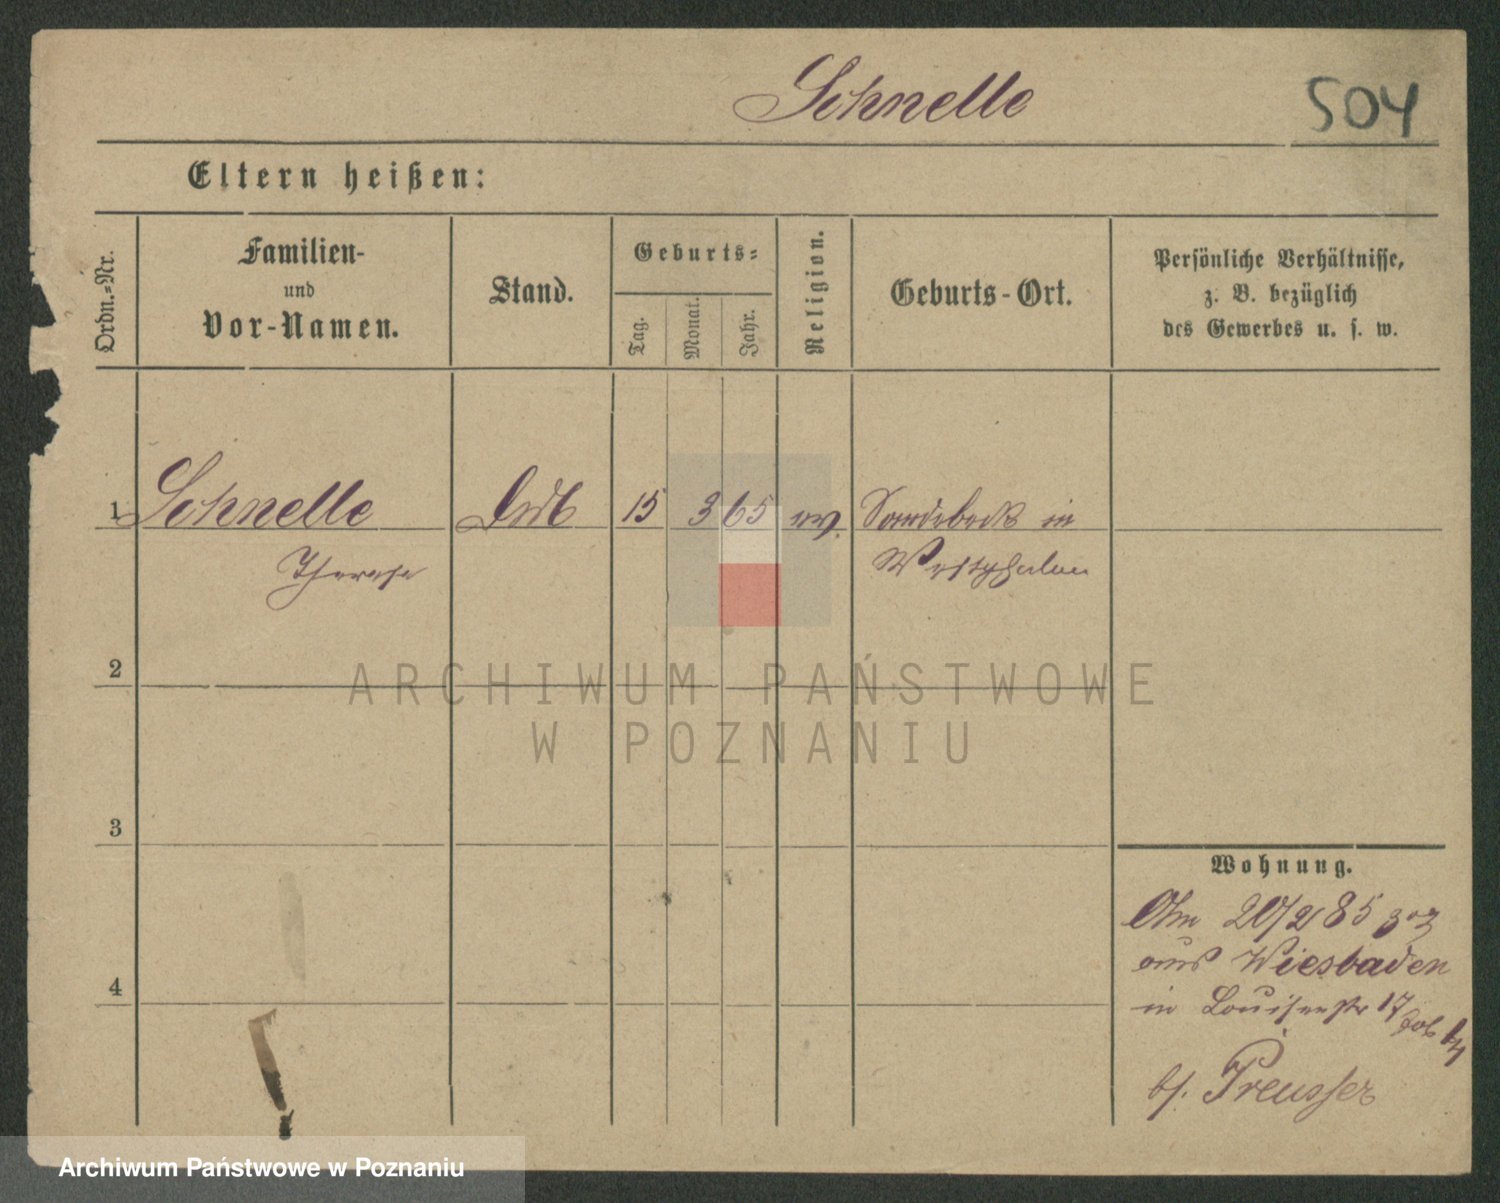 Schnelle
504
Eltern heißen:
Ordn.-Nr.
Familien-
und
Vor-Namen.
Stand.
Geburts-
Tag.
Monat.
Jahr.
Religion.
Geburts-Ort.
Persönliche Verhältnisse,
z. B. bezüglich
des Gewerbes u. s. w.
1 Schnelle 15 3 65 ev. in
Therese Westphalen
2
3
4
Wohnung.
20/2 85
aus Wiesbaden
in Louisenstr 17
bf. Preusser
ARCHIWUM PAŃSTWOWE
W POZNANIU
Archiwum Państwowe w Poznaniu